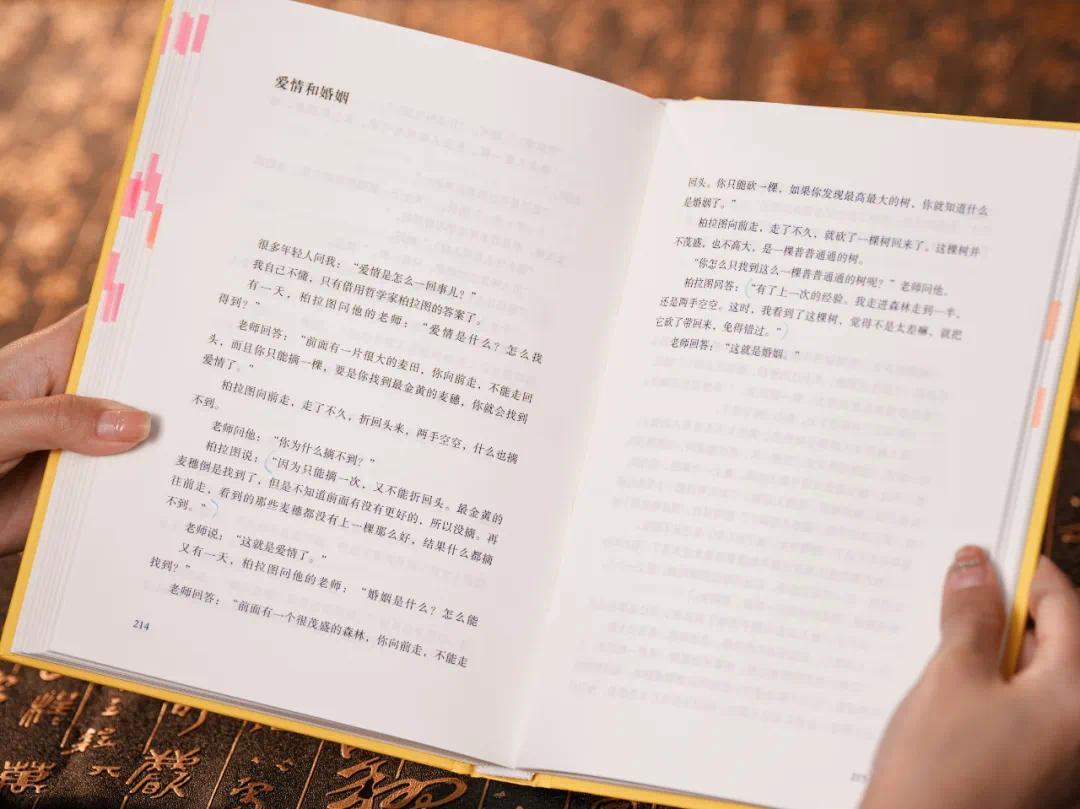 爱情和婚姻
很多年轻人问我：“爱情是怎么一回事儿？”
我自己不懂，只有借用哲学家柏拉图的答案了。
有一天，柏拉图问他的老师：“爱情是什么？怎么找
得到？”
老师回答：“前面有一片很大的麦田，你向前走，不能走回
头，而且你只能摘一棵，要是你找到最金黄的麦穗，你就会找到
爱情了。”
柏拉图向前走，走了不久，折回头来，两手空空，什么也摘
不到。
老师问他：“你为什么摘不到？”
柏拉图说：“因为只能摘一次，又不能折回头。最金黄的
麦穗倒是找到了，但是不知道前面有没有更好的，所以没摘。再
往前走，看到的那些麦穗都没有上一棵那么好，结果什么都摘
不到。”
老师说：“这就是爱情了。”
又有一天，柏拉图问他的老师：“婚姻是什么？怎么能
找到？”
老师回答：“前面有一个很茂盛的森林，你向前走，不能走
214
回头。你只能砍一棵，如果你发现最高最大的树，你就知道什么
是婚姻了。”
柏拉图向前走，走了不久，就砍了一棵树回来了。这棵树并
不茂盛，也不高大，是一棵普普通通的树。
“你怎么只找到这么一棵普普通通的树呢？”老师问他。
柏拉图回答：“有了上一次的经验。我走进森林走到一半，
还是两手空空。这时，我看到了这棵树，觉得不是太差嘛，就把
它砍了带回来，免得错过。”
老师回答：“这就是婚姻。”